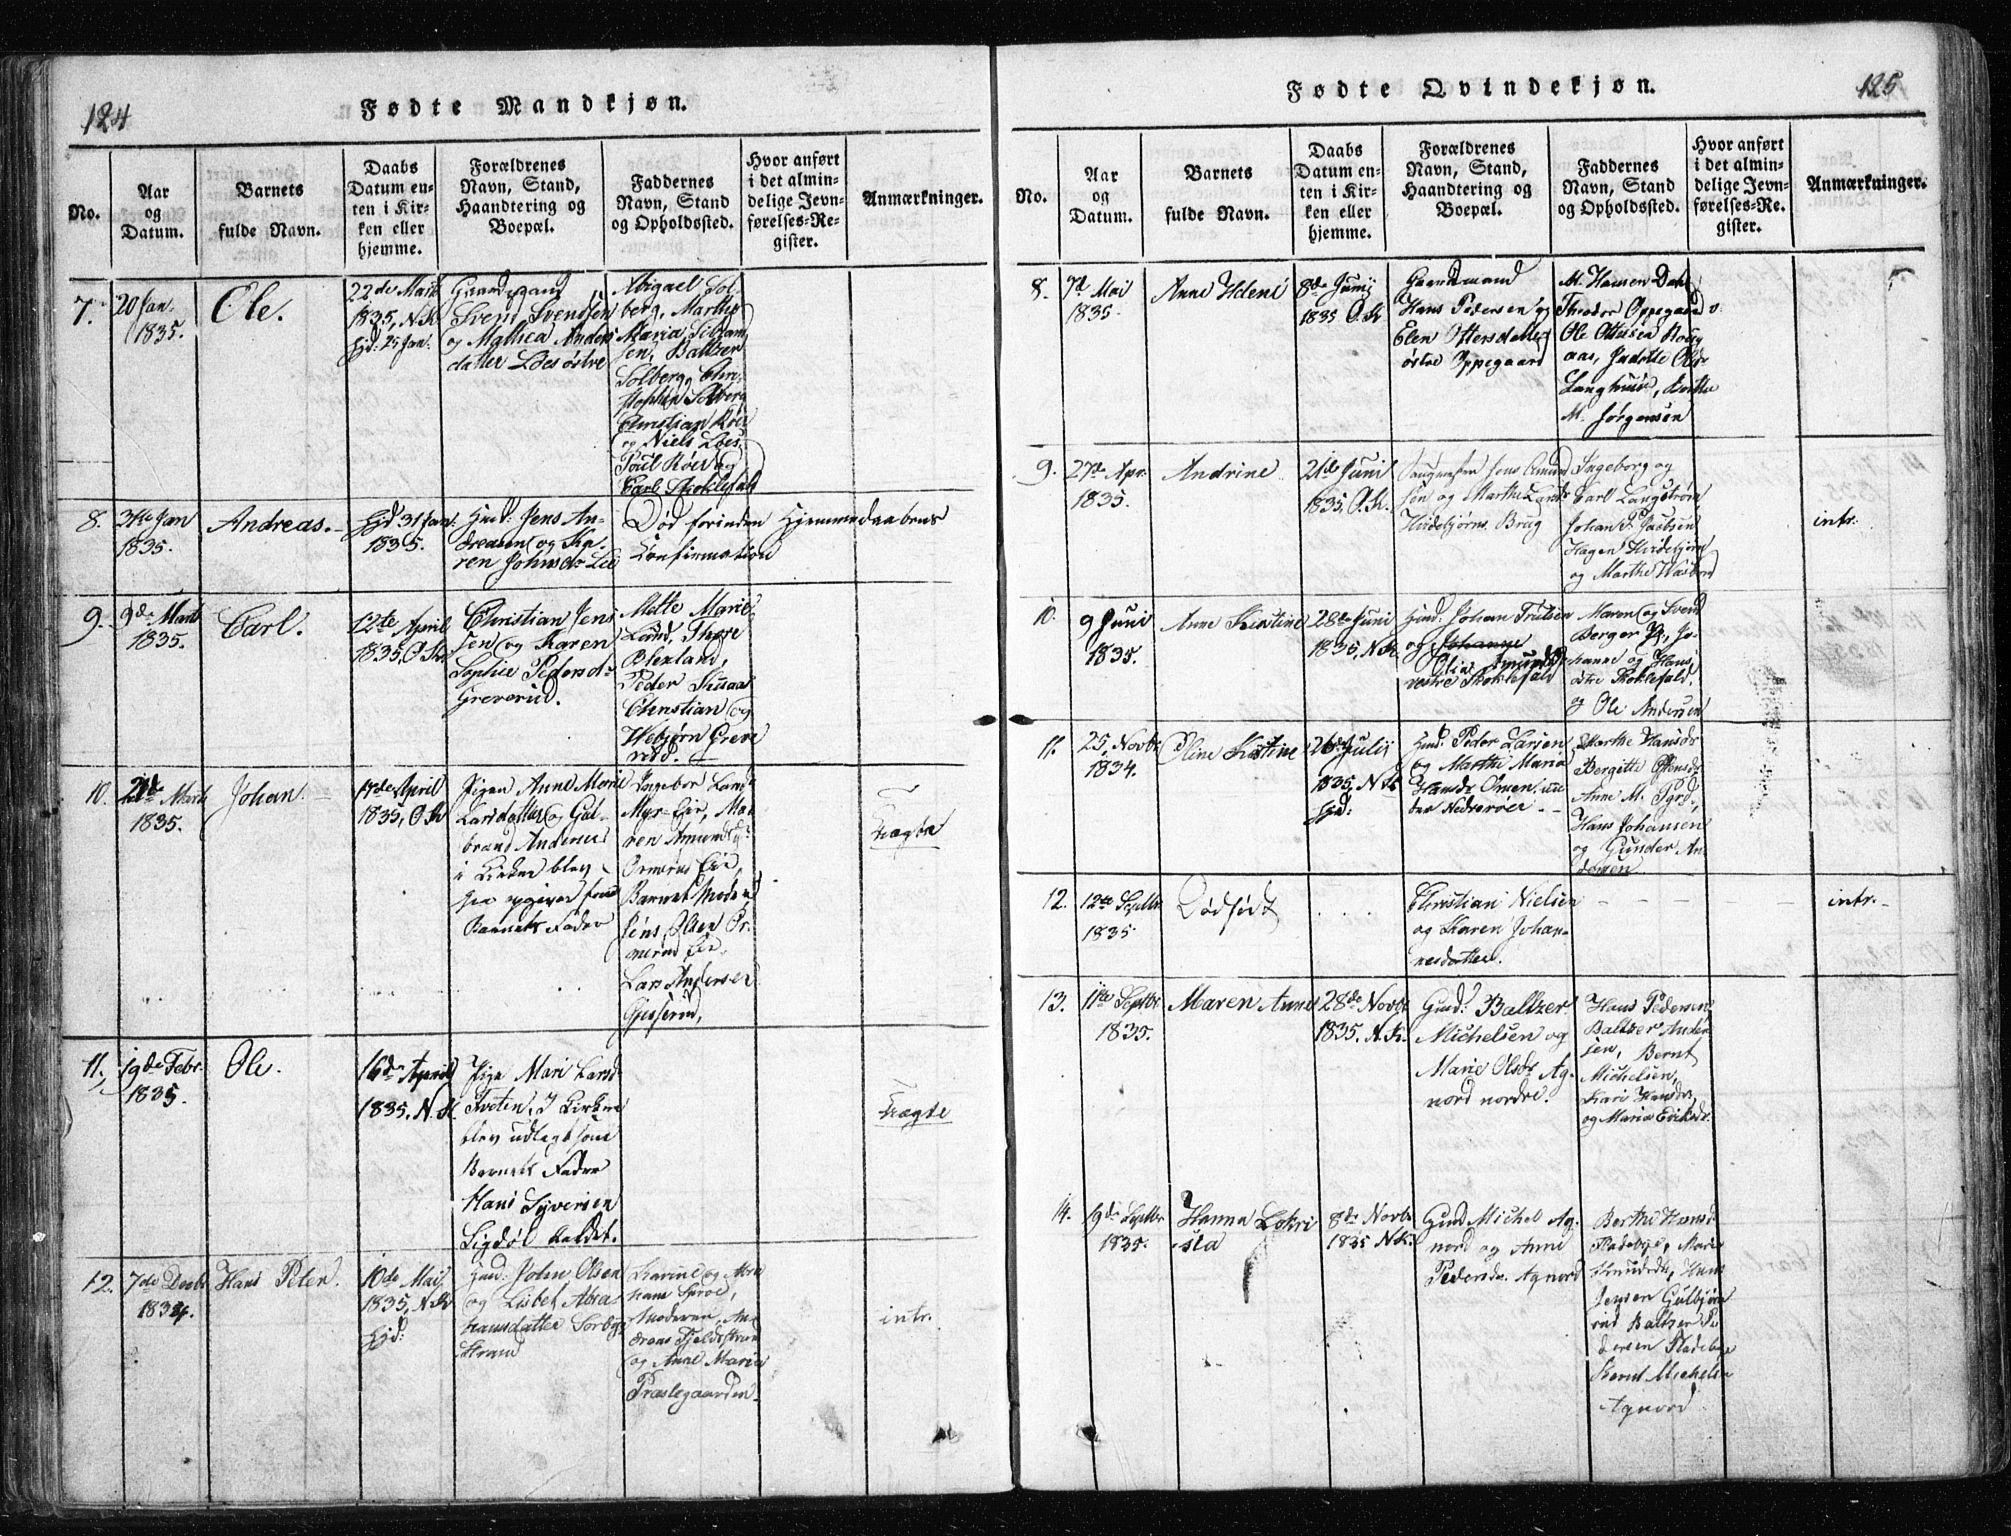 124
Fødte Mandkjøn.
No.
Aar
og
Datum.
Barnets
fulde Navn.
Daabs
Datum en-
ten i Kir-
ken eller
hjemme.
Forældrenes
Navn, Stand,
Haandtering og
Boepæl.
Faddernes
Navn, Stand
og Opholdssted.
Hvor anført
i det almin-
delige Jevn-
førelses-Re-
gister.
Anmærkninger.
7.
20 Jan.
1835.
Ole.
22de Marts
1835, N.K.
Hjd: 25 Jan.
Svend Svendsen
og Mathea Anders
datter Loes østre
Abigael Sol-
berg, Marthe
Maria
sen, Baltzer
Solberg, Chri-
stophin Solberg
Christian Röer
og Niels Loes,
Poul Röer og
Carl Skoklefald
8.
31te Jan
1835.
Andreas.
Hjd 31 Jan:
1835.
Huusd: Jens An-
dreasen og Ka-
ren Johnsdr Lie
Død forinden Hjemmedaabens
Confirmation
9.
9de Marts
1835.
Carl.
12te April
1835, O.K.
Christian Jens
sen og Karen
Sophie Pedersdr
Greverud.
Mette Marie
Lund, Thore
Blexland,
Peder
Christian og
Webjørn Greve
rud.
10.
21de Marts
1835.
Johan.
17de April
1835, O.K.
Pigen Anne Marie
Larsdatter og Gul-
brand Anderses
i Kirken blev
angivet som
Barnets Fader
Ingebor Lund
Myr-Eie, Ma-
ren Amundsdr
Ormerud Eie,
Barnets Moder
Jens Olsen Or-
merud Eie,
Lars Andersen
Gjisserud,
Uægte
11.
19de Febr.
1835.
Ole.
16de April
1835. N.K.
Pige Mari Larsd
Tveten. I Kirken
blev udlagt som
Barnets Fader
Hans Syversen
Sigdøl kaldet.
Uægte
12.
7de Decbr
1834.
Hans Peter.
10de Mai
1835, N.K.
Hjd:
Huusd: John Olsen
og Lisbet Abra
hamsdatter Torbge
Strand
Karine og Abra
ham Sproe,
Moderen, An
dreas Fjeldstrand
og Anne Maria
Præstegaarden.
intr.
Fødte Qvindekjøn.
125
No.
Aar
og
Datum.
Barnets
fulde Navn.
Daabs
Datum en-
ten i Kir-
ken eller
hjemme.
Forældrenes
Navn, Stand,
Haandtering og
Boepæl.
Faddernes
Navn, Stand
og Opholdssted.
Hvor anført
i det almin-
delige Jevn-
førelses-Re-
gister.
Anmærkninger.
8.
7de Mai
1835.
Anne Helene
8de Junij
1835 O.K
Gaardmand
Hans Pedersen og
Elen Ottersdatter
østre Oppegaard
M. Hansen Dahl
Theodor Oppegaard v.
Ole Ottersen Kolg
aas,
Langhuus, Berthe
M. Jørgensen
9.
27de Apr.
1835.
Andrine
21de Juni
1835. O.K.
Saugmester Jens Amund
sen og Marthe Larsdr
Hvidebjørns Brug
Ingeborg og
Carl Langstrøm,
Johan P. Jacobsen
Hagen Hvidebjørn
og Marthe
intr.
10.
9 Juni
1835.
Anne Kirstine
28de Juni
1835, N.K
Huusd. Johan Trulsen
og Johanne
Olia Amundsdr
vestre Skoklefald
Maren og Svend
Berger Pr., Jo-
hanne og Hans
østre Skoklefald,
og Ole Andersen
11.
25, Novbr
1834.
Oline Kirstine
26de Julij
1835, N.K
Hjd:
Huusd. Peder Larsen
og Marthe Maria
Hansdr Omen, un
der Nedrerøer
Marthe Hansdr
Bergitte Ottersdr
Anne M.
Hans Johansen
og Gunder An
dersen
12.
12te Septbr
1835.
Dødfødt
Christian Nielsen
og Karen Johan-
nesdatter.
intr.
13.
11te Septbr
1835.
Maren Anne
28de Novbr
1835. N.K.
Huusd: Baltzer
Michelsen og
Marie Olsdr Ag-
nord nordre.
Hans Pedersen
Baltzer Ander
sen, Bernt
Michelsen,
Kari Hansdr
og Maria Eriksdr.
14.
19de Septbr
1835.
Hanna Lovi
sta
8de Novbr
1835 N.K.
Huusd Michel Ag-
nord og Anne
Pedersdr. Agnord
Berthe Hansd
Fladebye, Maria
Knudsdr, Hans
Jensen Gulbjørn
rud Baltzer Pe
dersen Fladebye
Bernt Michelsen
Agnord